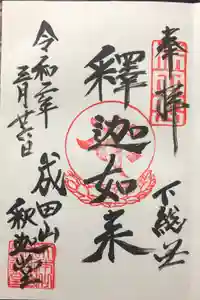 奉拝
下総国
釋迦如来
令和二年
三月廿六日
成田山
釈迦堂